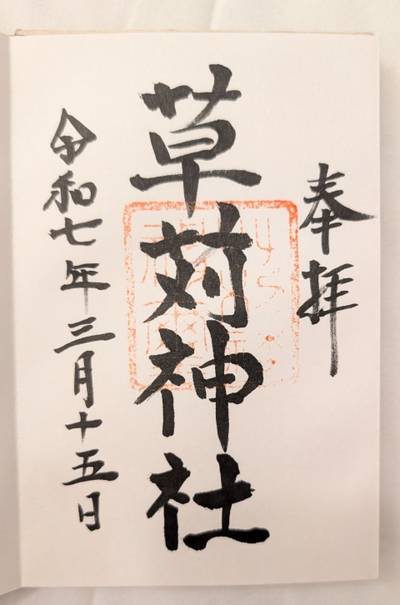 奉拝
草苅神社
令和七年三月十五日